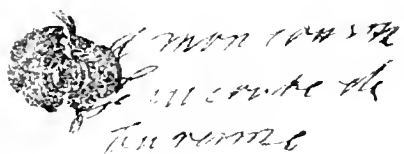 A mon cousin
le viconte de
turenne